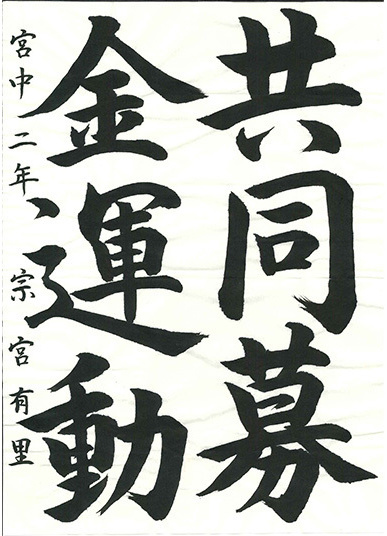 共同募
金運動
宮中二年 宗宮有里